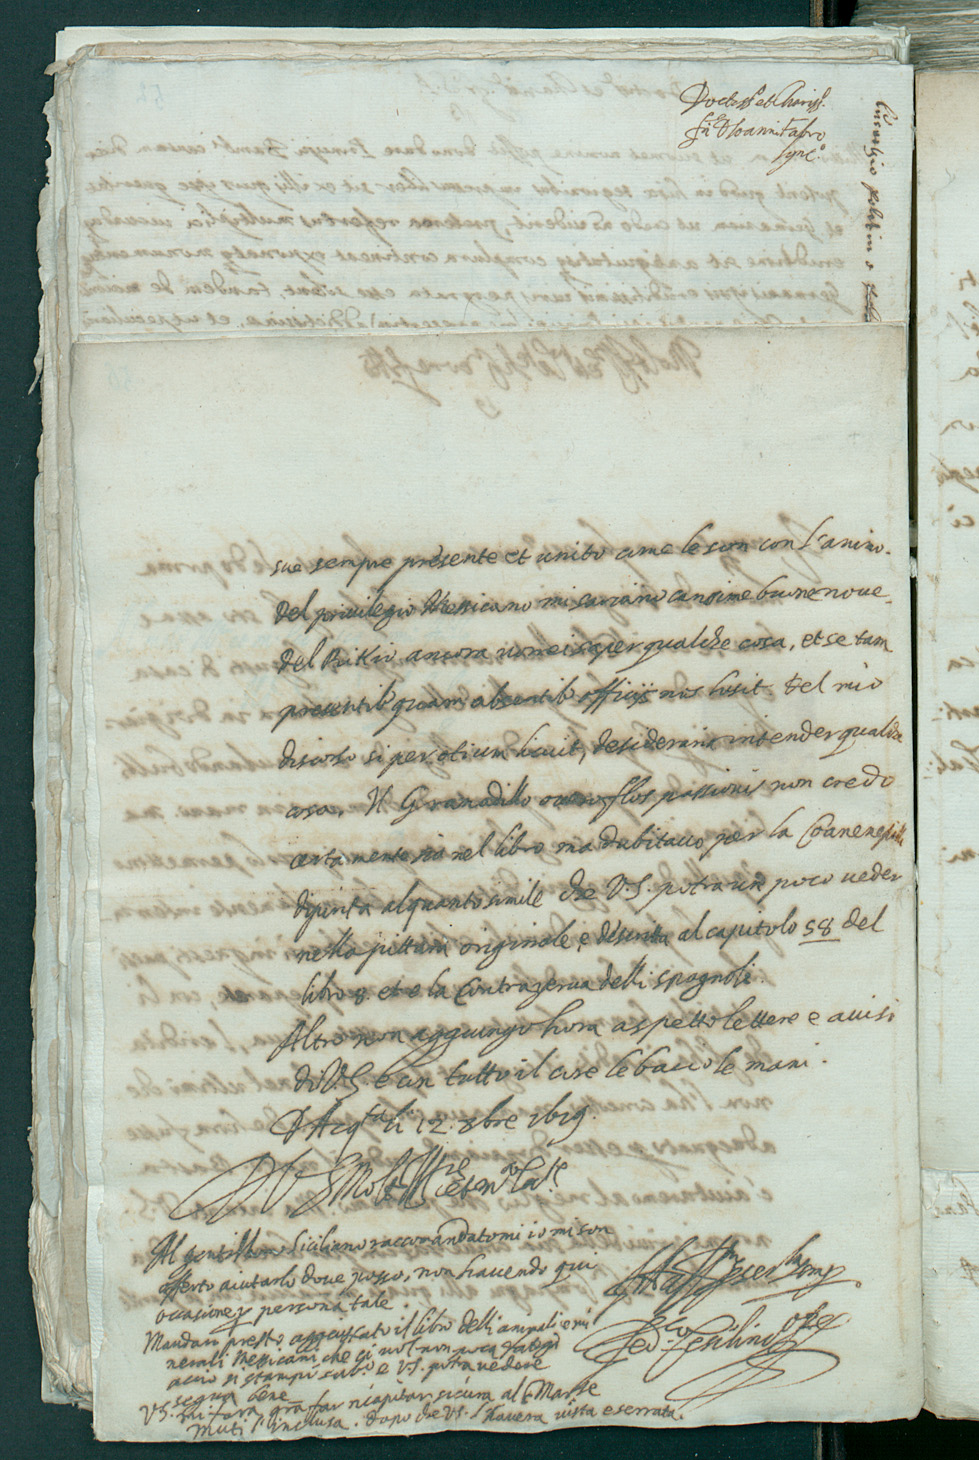 Doctiss.o et Chariss.
D. Ioanni Fabro
Lync.o
sue sempre presente et unito come le son con l'animo.
Del privilegio Messicano mi sariano carissime buone nove
del Rikio ancora vorrei saper qualche cosa, et se tam
presentib. quam absentib. officijs nos iuvit. Del mio
discorso si per otium licuit, desideraria intender qualche
cosa. Il Granadillo overo flos passionis non credo
certamente sia nel libro ma dubitavo per la Coanenepilli
dipinta alquanto simile che V.S. potra un poco veder
nella pittura originale, e descritta al capitolo 58 del
libro 8. et e la Contrayerva delli spagnoli.
Altro non aggiungo hora aspetto lettere e avisi
di V.S. e con tutto il core le bacio le mani.
D'Acq.ta li 12. 8bre 1619.
D V S Molt Ill.re et
Al gentilhomo Siciliano raccomandatomi io mi son
offerto aiutarlo dove posso, non havendo qui
occasione p persona tale.
Mandari presto aggiustato il libro delli animali e mi
nerali Messicani che ci vol non poca fatiga
accio si stampi subito e V.S. potra vedere
segua bene
V.S. mi fara gra far ricapitar sicura al Marse
Muti l'inclusa. dopo che V.S. l'havera vista e serrata.
Aff.mo per ser.la sempre
Fed.co Cesi Linceo